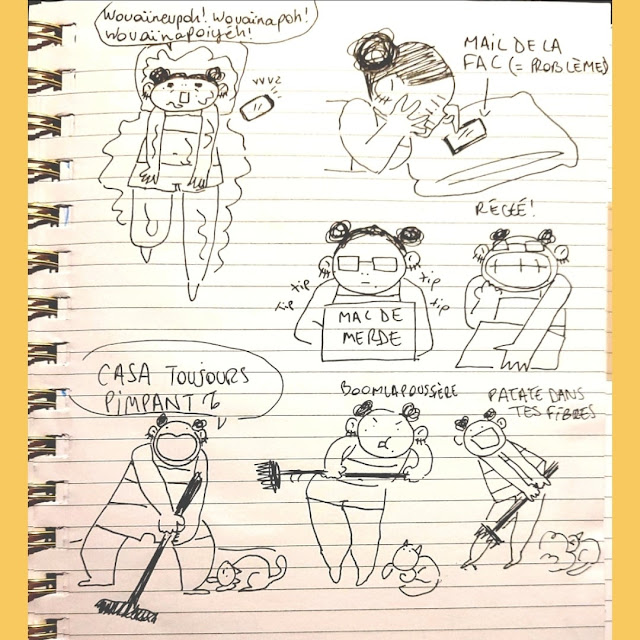 Wouaïneupoh! Wouaïnapoh!
Wouaïnapoiyéh!
VVVZ
MAIL DE LA
FAC (= PROBLÈME)
RÉGLÉ!
Tip
tip
tip
tip
MAC DE
MERDE
CASA TOUJOURS
PIMPANT
BOOM LA POUSSIÈRE
PATATE DANS
TES FIBRES